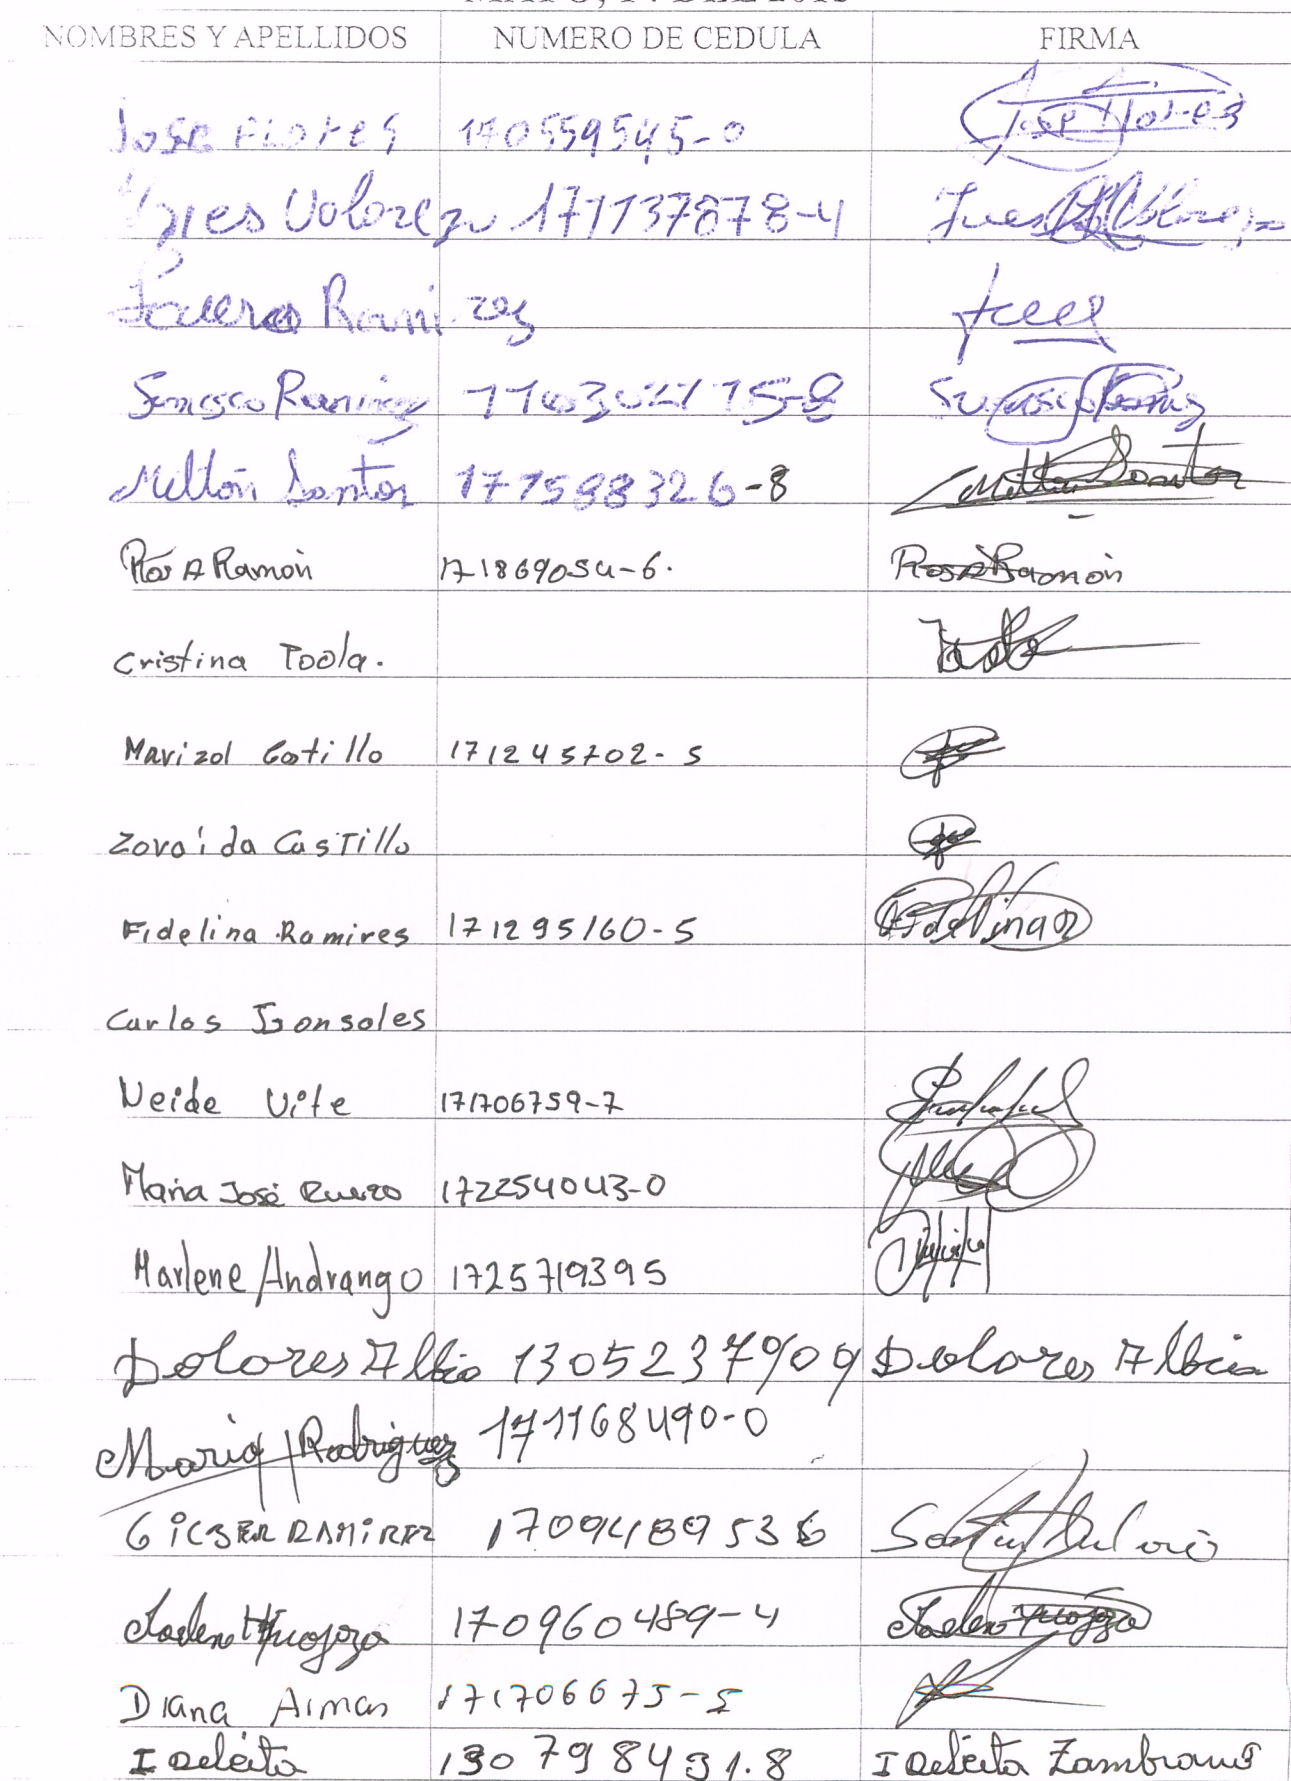 NOMBRES Y APELLIDOS NUMERO DE CEDULA FIRMA
Jose Flores 170559545-0 Jose Flores
Ynes Valarezo 171137878-4
Ramirez
Ramirez
Melton Santos 171588326-8 Santos
Rosa Ramón 171869054-6. Rosa Ramón
Cristina Toola.
Marizol Castillo 171245702-5
Zoraida Castillo
Fidelina Ramires 171295160-5 Fidelina R
Carlos Gonsoles
Neide Vite 171706759-7
Maria José 172254043-0
Marlene Andrango 1725719395
Dolores Albia 1305237909 Dolores Albia
Maria Rodriguez 171168490-0
GILBER RAMIREZ 1709489536
170960489-4
Diana Armas 171706675-5
Idelcita 130798431.8 Idelcita Zambrano